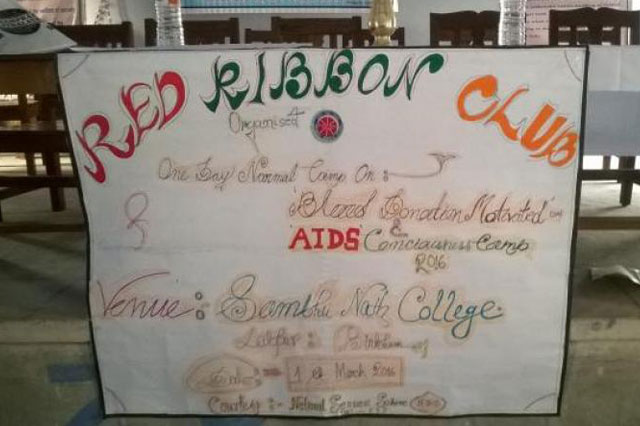 RED RIBBON CLUB
Organised
One Day Normal Camp On :
'Blood Donation Motivated' &
AIDS Conciousness Camp
2016
Venue :- Sambhu Nath College
Labpur :- Birbhum
March 2016
Courtesy :- National Service Scheme